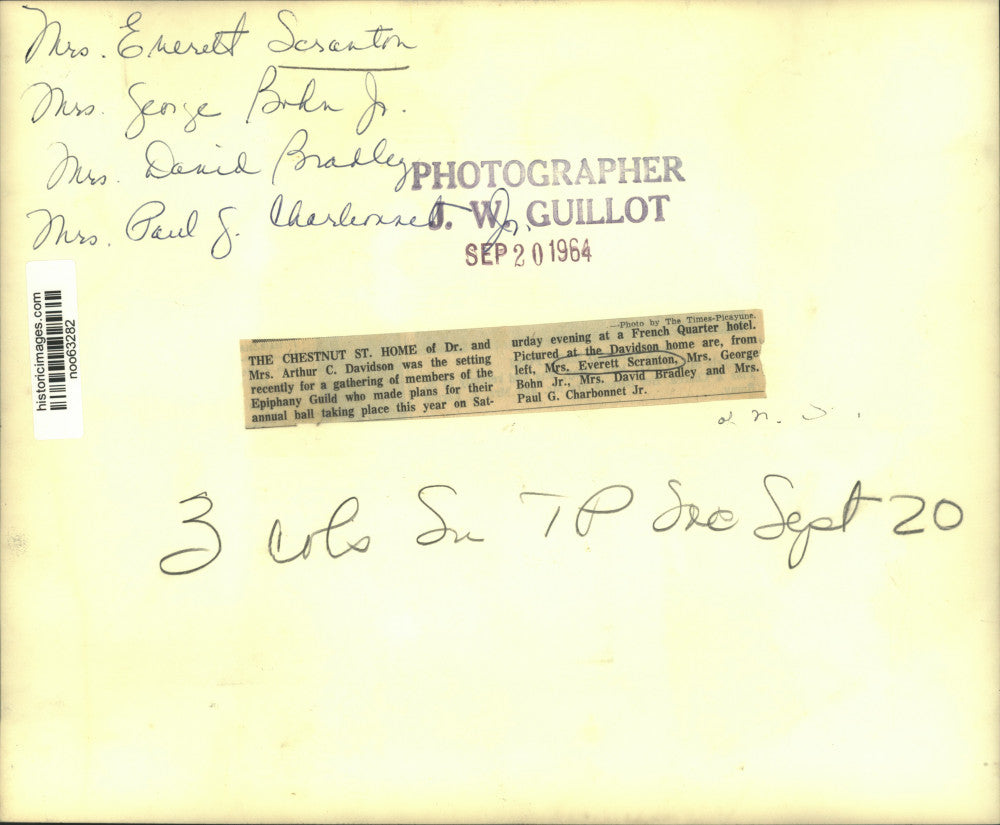 Mrs. Everett Scranton
Mrs. George Bohn Jr.
Mrs. David Bradley
Mrs. Paul G. Charbonnet Jr.
PHOTOGRAPHER
J. W. GUILLOT
SEP 20 1964
historicimages.com
noo63282
THE CHESTNUT ST. HOME of Dr. and
Mrs. Arthur C. Davidson was the setting
recently for a gathering of members of the
Epiphany Guild who made plans for their
annual ball taking place this year on Sat-
—Photo by The Times-Picayune.
urday evening at a French Quarter hotel.
Pictured at the Davidson home are, from
left, Mrs. Everett Scranton, Mrs. George
Bohn Jr., Mrs. David Bradley and Mrs.
Paul G. Charbonnet Jr.
3 Cols Su TP Soc Sept 20